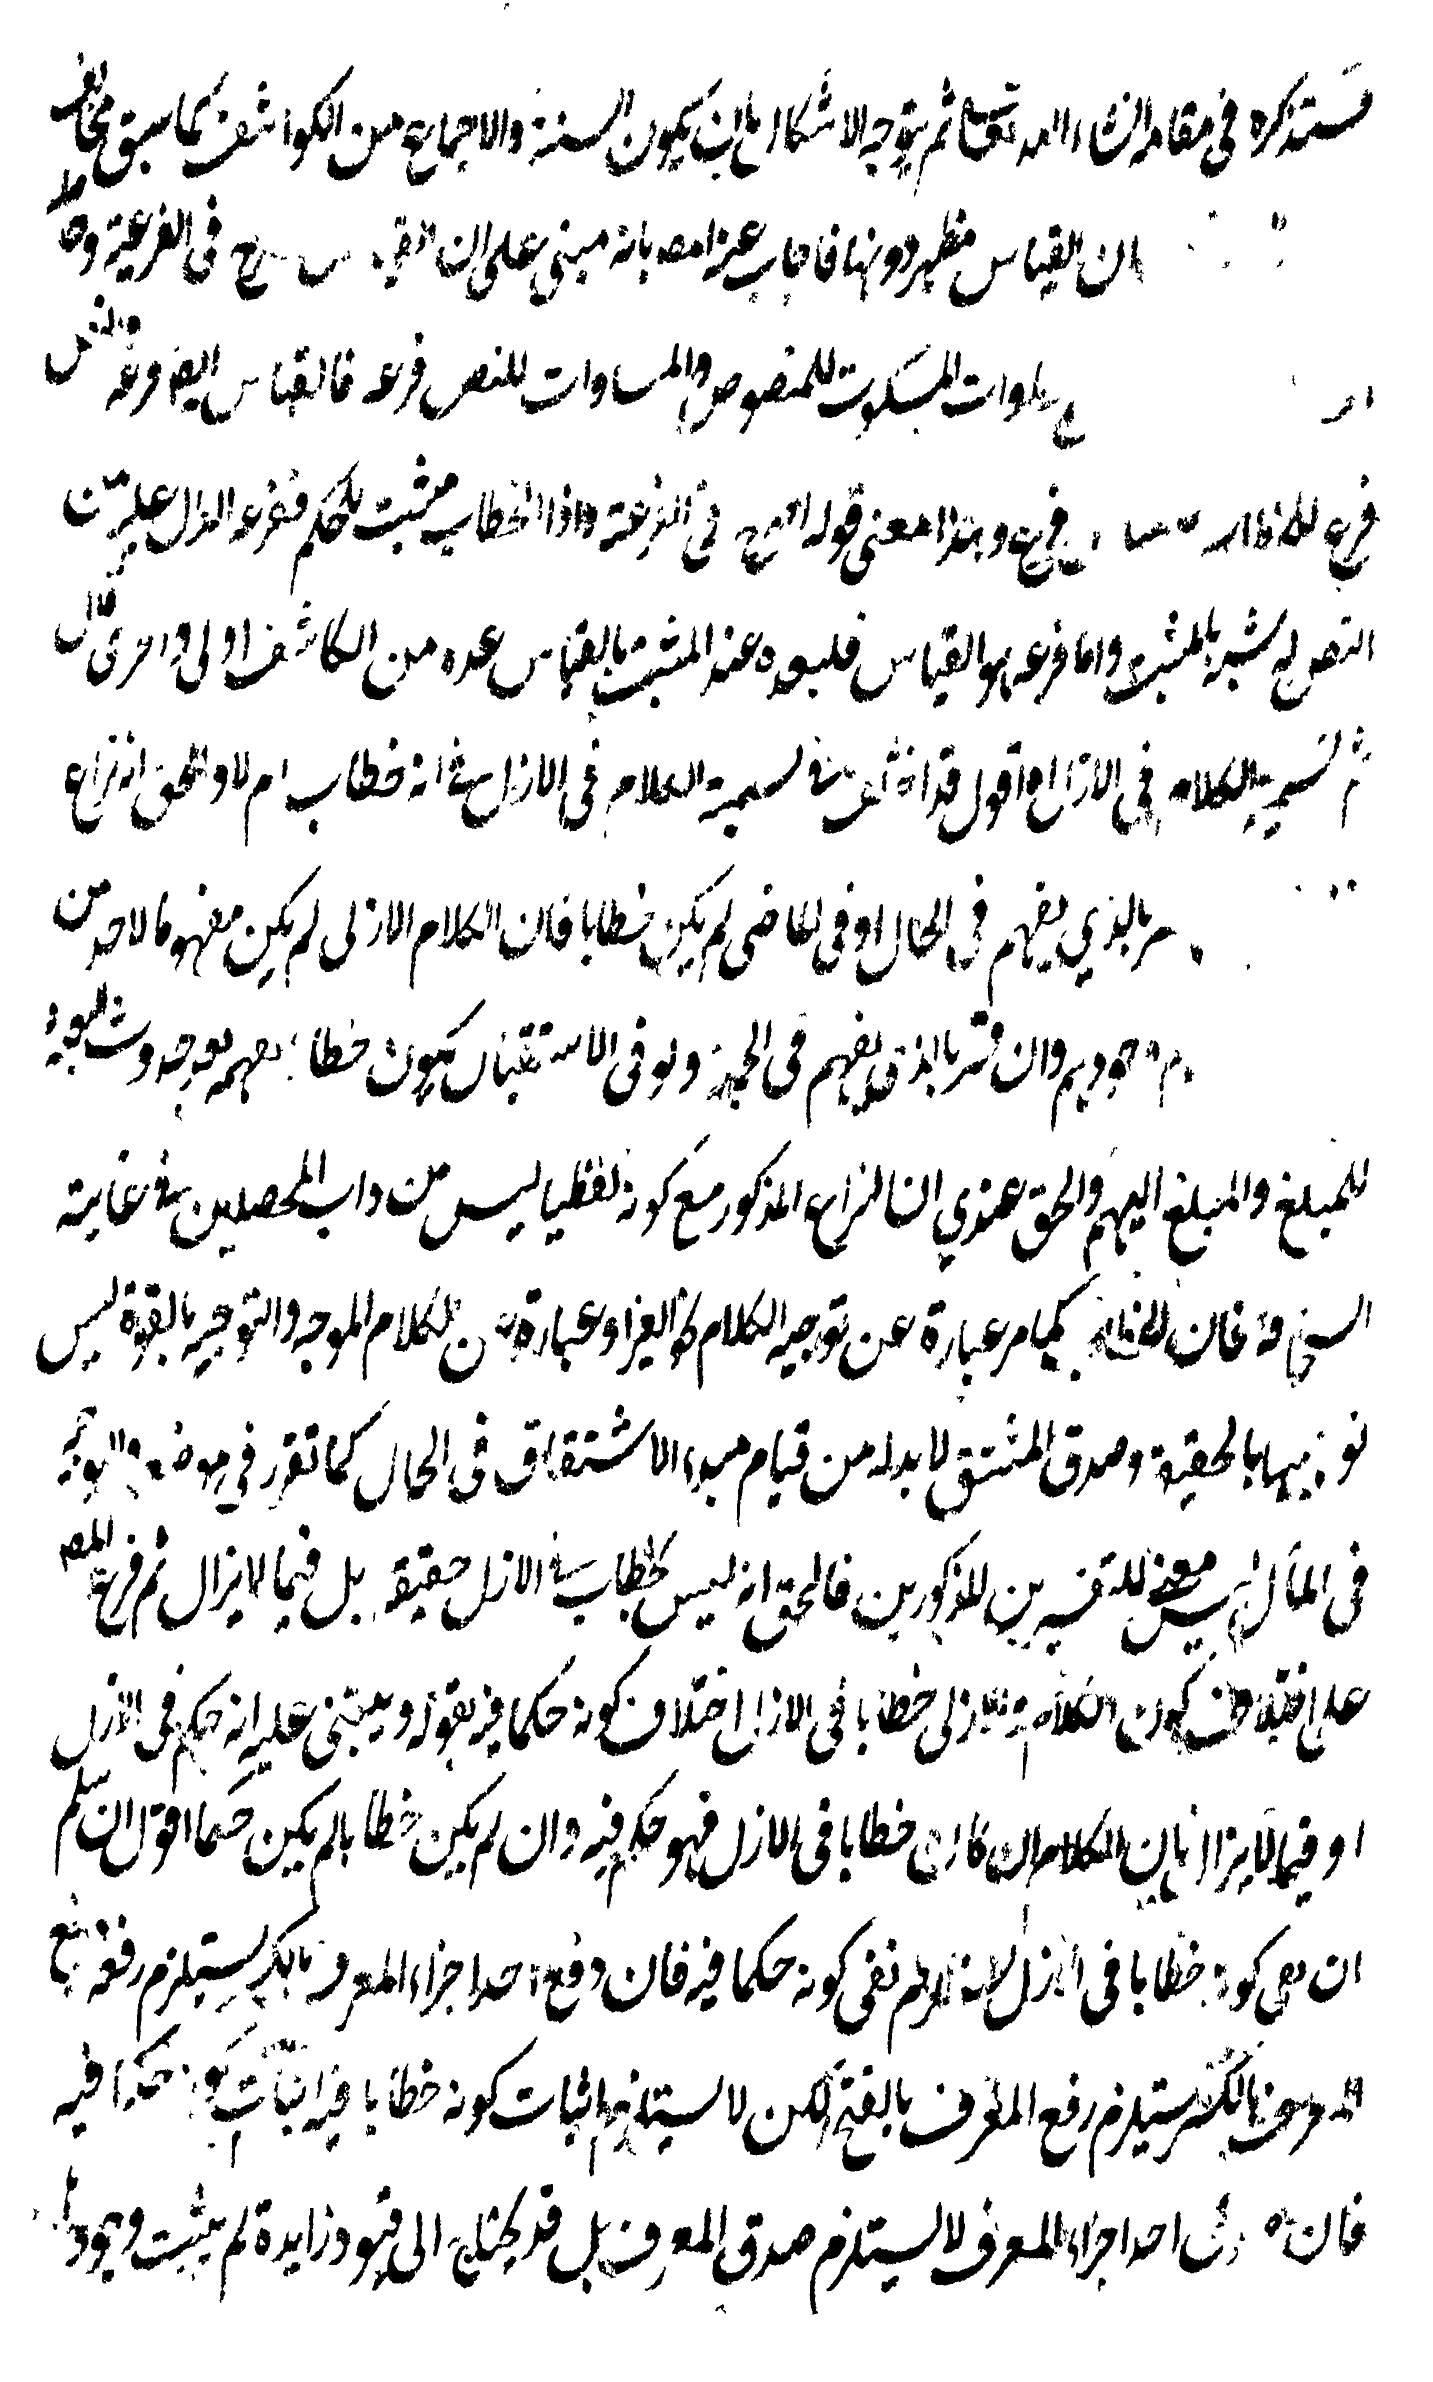 فستذكره في مقامه ان شاء الله تعالى ثم يتوجه الاشكال بان يكون السنة والاجماع من الكواشف كما سبق مخالف
ان القياس مظهر دونها فاجاب عنه المصـ بانه مبني على ان في الفرعية
المسكوت للمنصوص والمساوات للنص فرعه فالقياس ايضا فرعه
فرع للخطاب فرع وهذا معنى قوله في الفرعية واذا الخطاب مثبت للحكم ففرعه الدال عليه من
النص له شبه بالمثبت واما فرعه وهو القياس فلبعده عند المثبت بالقياس عده من الكاشف اولى واحرى قال
ثم تسمية الكلام في الازل اقول قد اختلف في تسمية الكلام في الازل في انه خطاب ام لا والحق انه نزاع
بالذي يفهم في الحال او في الماضي لم يكن خطابا فان الكلام الازلي لم يكن مفهوما لاحد من
وجودهم وان فسر بالذي يفهم في الجملة ولو في الاستقبال يكون خطابا
للمبلغ والمبلغ اليهم والحق عندي ان النزاع المذكور مع كونه لفظيا ليس من داب المحصلين في غاية
السخافة فان الخطاب كما مر عبارة عن توجيه الكلام نحو الغير او عبارة عن الكلام الموجه والتوجيه بالقوة ليس
توجيها بالحقيقة وصدق المشتق لا بد له من قيام مبدء الاشتقاق في الحال كما تقرر في موضعه والتوجيه
في المآل ليس معنى للتفسيرين المذكورين فالحق انه ليس بخطاب في الازل حقيقة بل فيما لا يزال ثم فرع المصـ
على اختلاف كون الكلام الازلي خطابا في الازل اختلاف كونه حكما فيه بقوله ويبتني عليه انه حكم في الازل
او فيما لا يزال فان الكلام ان كان خطابا في الازل فهو حكم فيه وان لم يكن خطابا لم يكن حكما اقول ان سلم
ان نفي كونه خطابا في الازل يستلزم نفي كونه حكما فيه فان رفع احد اجزاء المعرف بالكسر يستلزم رفعه ورفع
المعرف بالكسر يستلزم رفع المعرف بالفتح لكن لا يستلزم اثبات كونه خطابا فيه اثبات كونه حكما فيه
فان صدق احد اجزاء المعرف لا يستلزم صدق المعرف بل قد يحتاج الى قيود زايدة لم يثبت وجودها